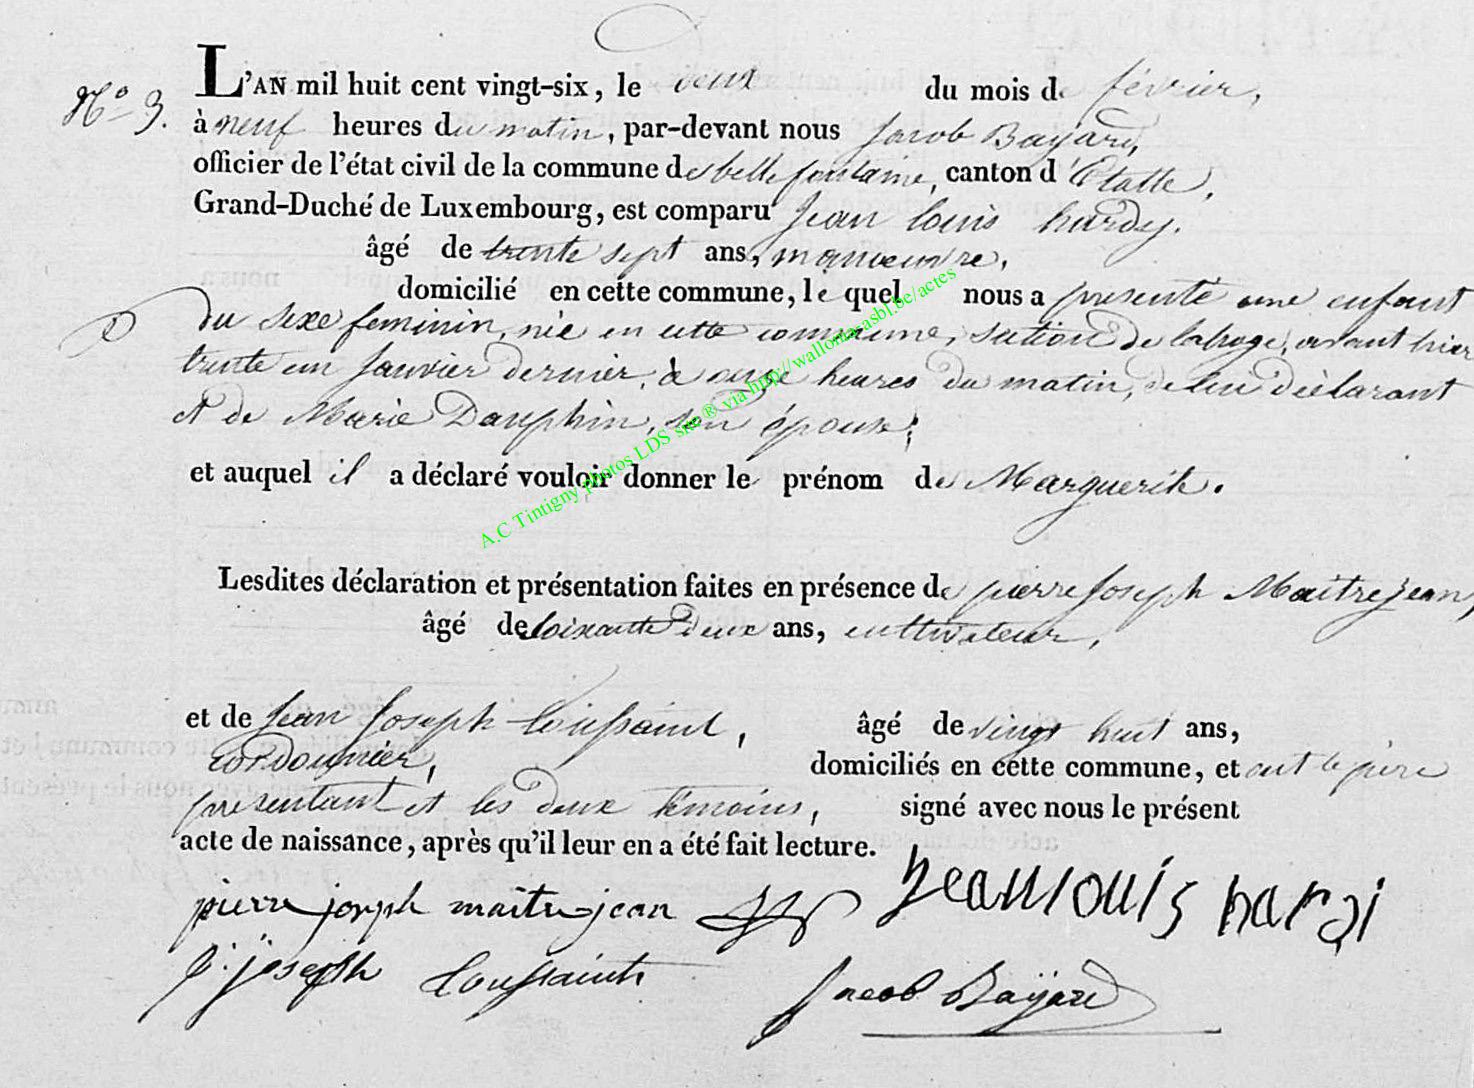 N.º 3. L'AN mil huit cent vingt-six, le deux du mois de février,
à neuf heures du matin, par-devant nous Jacob Bayard,
officier de l'état civil de la commune de bellefontaine, canton d'Etalle,
Grand-Duché de Luxembourg, est comparu Jean louis hardy.
âgé de trente sept ans, manoeuvre,
domicilié en cette commune, le quel nous a presenté une enfant
du sexe feminin, née en cette commune, section de lahage, avant hier
trente un Janvier dernier, à onze heures du matin, de lui déclarant
et de Marie Dauphin, son épouse;
et auquel il a déclaré vouloir donner le prénom de Marguerite.
A.C Tintigny photos LDS site® via http://walloniacasbl.be/actes
Lesdites déclaration et présentation faites en présence de pierre Joseph Maitrejean,
âgé de soixante deux ans, cultivateur,
et de Jean Joseph toussaint, âgé de vingt huit ans,
cordonnier, domiciliés en cette commune, et ont le pere
presentant et les deux témoins, signé avec nous le présent
acte de naissance, après qu'il leur en a été fait lecture.
pierre joseph maitrejean jean louis hardi
j. joseph toussaint Jacob Bayard